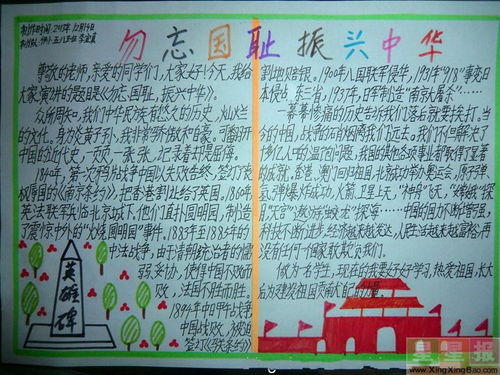 勿忘国耻 振兴中华
尊敬的老师,亲爱的同学们,大家好!今天,我给
大家演讲的题目是《勿忘国耻,振兴中华》。
众所周知,我们中华民族有悠久的历史,灿烂
的文化。身为炎黄子孙,我非常骄傲和自豪。可翻开
中国的近代史,一页一页,一张一张,记录着却是屈辱。
1840年,第一次鸦片战争中国以失败告终,签订了丧
权辱国的《南京条约》,把香港割让给了英国。1860年
英法联军攻占北京城下,他们直扑圆明园,制造
了震惊中外的“火烧圆明园”事件。1883年至1885年的
中法战争,由于清朝统治者的懦
弱,妥协,使得中国不败而
败,法国不胜而胜。
1894年中日甲午战争
中国战败,被迫
签订《马关条约》
英雄碑
割地赔银。1900年八国联军侵华,1931年“918”事变日
本侵占东三省,1937年,日军制造“南京大屠杀”……
一幕幕惨痛的历史告诉我们落后就要挨打。当
今的中国,战争的硝烟离我们远去。我们不但解决了
十多亿人口的温饱问题,我国的其他各项事业都取得了显著
的成就。香港、澳门回归祖国,北京成功举办奥运会,原子弹、
氢弹爆炸成功,火箭、卫星上天,“神舟”飞天,
中国的国力不断增强,
科技不断进步,经济越来越发达,人民生活越来越富裕,再
没有任何一个国家敢欺负我们。
做为一名学生,现在的我要好好学习,热爱祖国,长大
后为建设祖国贡献自己的力量。
星星报
www.XingXingBao.com